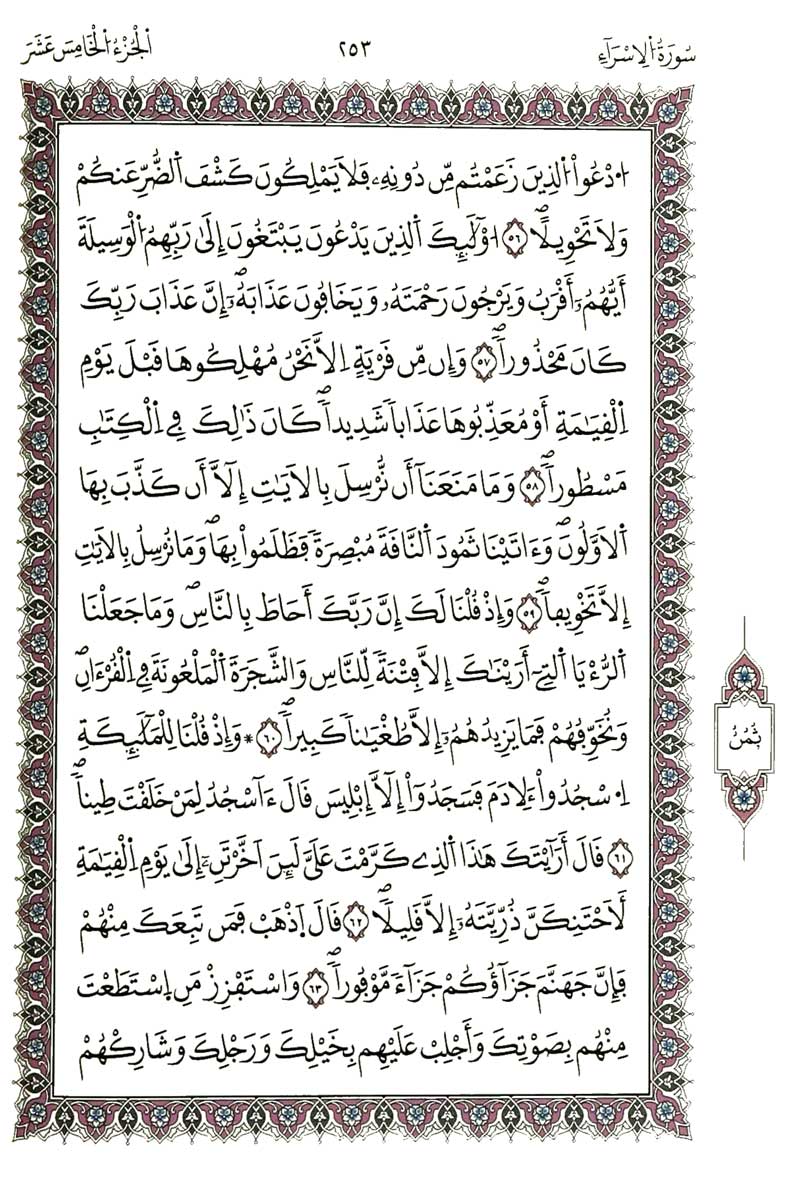 سُورَةُ اُ۬لِاسْرَآءِ
٢٥٣
اَ۬لْجُزْءُ اُ۬لْخَامِسَ عَشَرَ
اُ۟دْعُواْ اُ۬لذِينَ زَعَمْتُم مِّن دُونِهِۦ فَلَا يَمْلِكُونَ كَشْفَ اَ۬لضُّرِّ عَنكُمْ
وَلَا تَحْوِيلاًۖ ٥٦ ا۟وْلَٰٓئِكَ اَ۬لذِينَ يَدْعُونَ يَبْتَغُونَ إِلَىٰ رَبِّهِمُ اُ۬لْوَسِيلَةَ
أَيُّهُمُۥٓ أَقْرَبُ وَيَرْجُونَ رَحْمَتَهُۥ وَيَخَافُونَ عَذَابَهُۥٓۖ إِنَّ عَذَابَ رَبِّكَ
كَانَ مَحْذُوراٗۖ ٥٧ وَإِن مِّن قَرْيَةٍ اِلَّا نَحْنُ مُهْلِكُوهَا قَبْلَ يَوْمِ
اِ۬لْقِيَٰمَةِ أَوْ مُعَذِّبُوهَا عَذَاباٗ شَدِيداٗۖ كَانَ ذَٰلِكَ فِے اِ۬لْكِتَٰبِ
مَسْطُوراٗۖ ٥٨ وَمَا مَنَعَنَآ أَن نُّرْسِلَ بِالَايَٰتِ إِلَّآ أَن كَذَّبَ بِهَا
اَ۬لَاوَّلُونَۖ وَءَاتَيْنَا ثَمُودَ اَ۬لنَّاقَةَ مُبْصِرَةٗ فَظَلَمُواْ بِهَاۖ وَمَا نُرْسِلُ بِالَايَٰتِ
إِلَّا تَخْوِيفاٗۖ ٥٩ وَإِذْ قُلْنَا لَكَ إِنَّ رَبَّكَ أَحَاطَ بِالنَّاسِۖ وَمَا جَعَلْنَا
اَ۬لرُّءْيَا اَ۬لتِےٓ أَرَيْنَٰكَ إِلَّا فِتْنَةٗ لِّلنَّاسِ وَالشَّجَرَةَ اَ۬لْمَلْعُونَةَ فِے اِ۬لْقُرْءَانِۖ
وَنُخَوِّفُهُمْ فَمَا يَزِيدُهُمُۥٓ إِلَّا طُغْيَٰناٗ كَبِيراٗۖ ٦٠ * وَإِذْ قُلْنَا لِلْمَلَٰٓئِكَةِ
اِ۟سْجُدُواْ ءِلَادَمَ فَسَجَدُوٓاْ إِلَّآ إِبْلِيسَ قَالَ ءَآسْجُدُ لِمَنْ خَلَقْتَ طِيناٗۖ
٦١ قَالَ أَرَٰٓيْتَكَ هَٰذَا اَ۬لذِے كَرَّمْتَ عَلَيَّ لَئِنَ اَخَّرْتَنِۦٓ إِلَىٰ يَوْمِ اِ۬لْقِيَٰمَةِ
لَأَحْتَنِكَنَّ ذُرِّيَّتَهُۥٓ إِلَّا قَلِيلاٗۖ ٦٢ قَالَ اَ۪ذْهَبْ فَمَن تَبِعَكَ مِنْهُمْ
فَإِنَّ جَهَنَّمَ جَزَآؤُكُمْ جَزَآءٗ مَّوْفُوراٗۖ ٦٣ وَاسْتَفْزِزْ مَنِ اِ۪سْتَطَعْتَ
مِنْهُم بِصَوْتِكَ وَأَجْلِبْ عَلَيْهِم بِخَيْلِكَ وَرَجْلِكَ وَشَارِكْهُمْ
ثُمُنُ